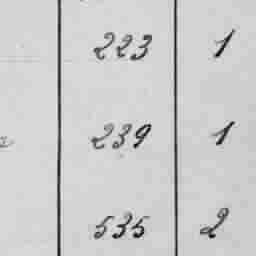 223 1
239 1
535 2